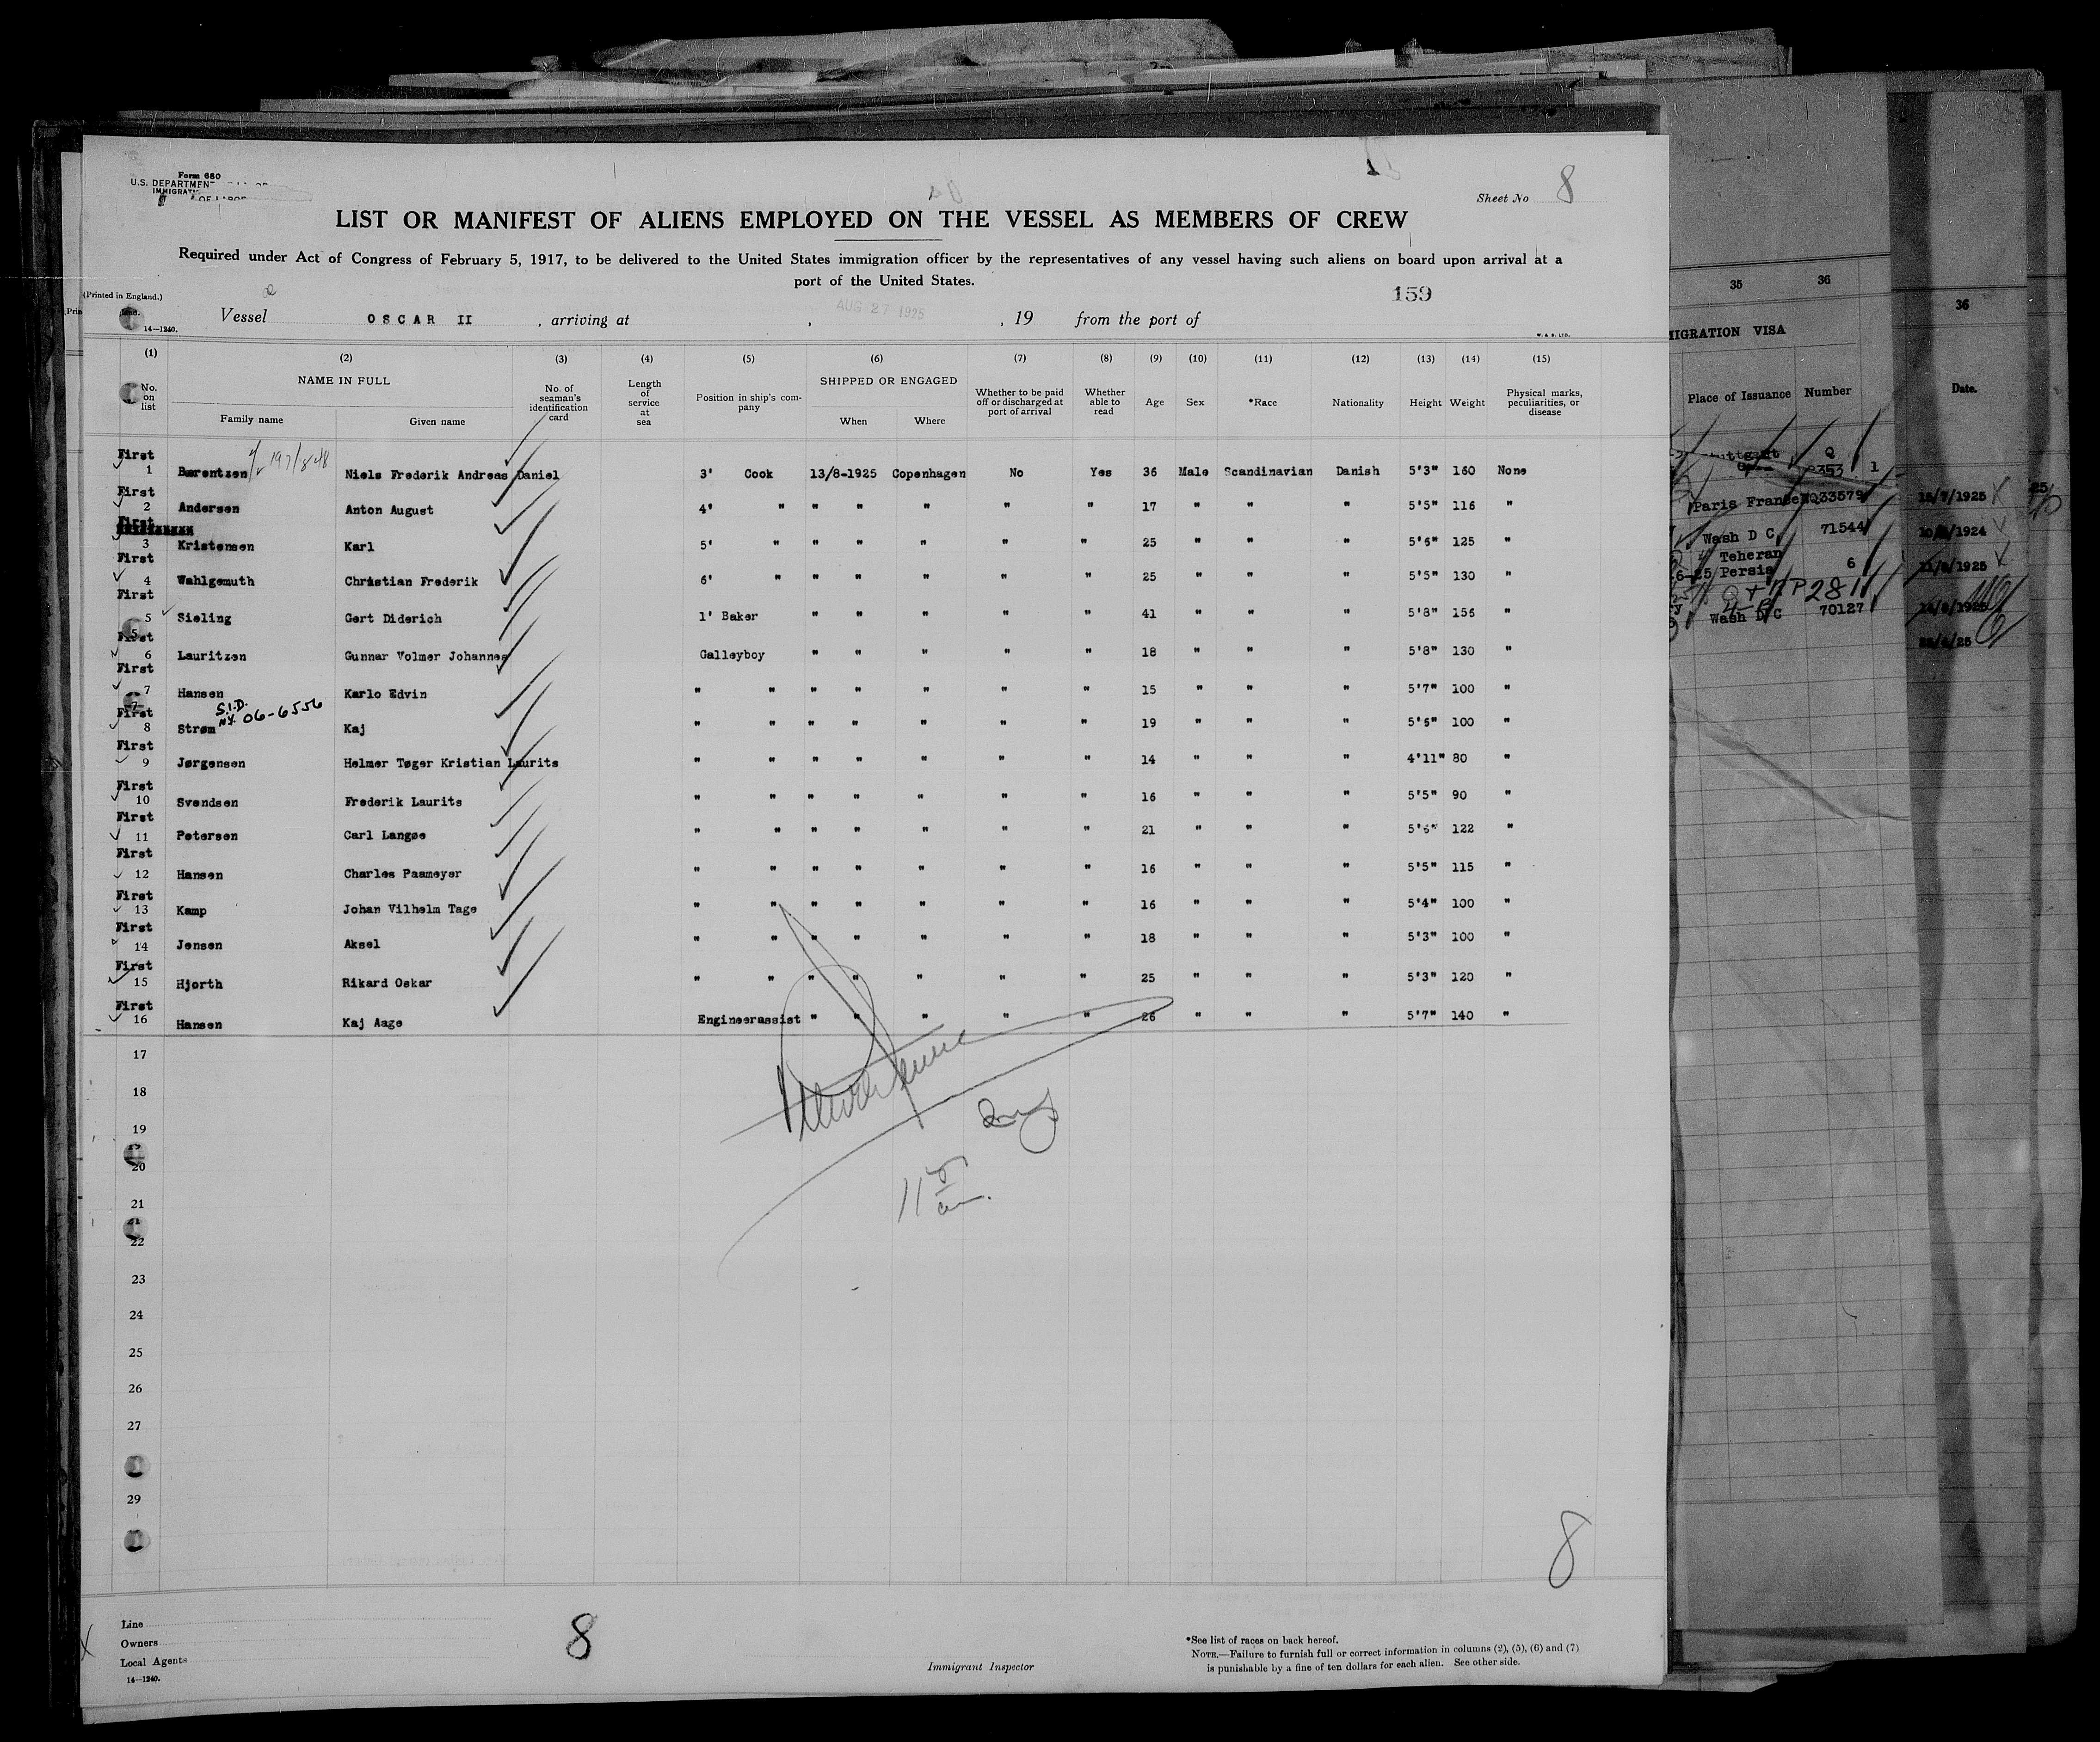 Form 680
U.S. DEPARTMENT
IMMIGRAT
OF LABOR
Sheet No 8
LIST OR MANIFEST OF ALIENS EMPLOYED ON THE VESSEL AS MEMBERS OF CREW
Required under Act of Congress of February 5, 1917, to be delivered to the United States immigration officer by the representatives of any vessel having such aliens on board upon arrival at a
port of the United States.
(Printed in England.)
159
14—1240.
Vessel OSCAR II , arriving at , AUG 27 1925 , 19 from the port of
W. & S. LTD.
(1) (2) (3) (4) (5) (6) (7) (8) (9) (10) (11) (12) (13) (14) (15)
No. on list NAME IN FULL Family name Given name No. of seaman's identification card Length of service at sea Position in ship's company SHIPPED OR ENGAGED When Where Whether to be paid off or discharged at port of arrival Whether able to read Age Sex *Race Nationality Height Weight Physical marks, peculiarities, or disease
First
1 Barentzen Niels Frederik Andreas Daniel 3' Cook 13/8-1925 Copenhagen No Yes 36 Male Scandinavian Danish 5'3" 160 None
First
2 Andersen Anton August 4' " " " " " " 17 " " " 5'5" 116 "
First
3 Kristensen Karl 5' " " " " " " 25 " " " 5'6" 125 "
First
4 Wahlgemuth Christian Frederik 6' " " " " " " 25 " " " 5'5" 130 "
First
5 Sieling Gert Diderich 1' Baker " " " " " 41 " " " 5'8" 156 "
First
6 Lauritzen Gunnar Volmer Johannes Galleyboy " " " " " 18 " " " 5'8" 130 "
First
7 Hansen Karlo Edvin " " " " " " " 15 " " " 5'7" 100 "
S.I.D.
N.Y. 06-6556
First
8 Strøm Kaj " " " " " " " 19 " " " 5'6" 100 "
First
9 Jørgensen Helmer Tøger Kristian Laurits " " " " " " " 14 " " " 4'11" 80 "
First
10 Svendsen Frederik Laurits " " " " " " " 16 " " " 5'5" 90 "
First
11 Petersen Carl Langøe " " " " " " " 21 " " " 5'6" 122 "
First
12 Hansen Charles Paameyer " " " " " " " 16 " " " 5'5" 115 "
First
13 Kamp Johan Vilhelm Tage " " " " " " " 16 " " " 5'4" 100 "
First
14 Jensen Aksel " " " " " " " 18 " " " 5'3" 100 "
First
15 Hjorth Rikard Oskar " " " " " " " 25 " " " 5'3" 120 "
First
16 Hansen Kaj Aage Engineerassist " " " " " 26 " " " 5'7" 140 "
17
18
19
20
21
22
23
24
25
26
27
29
8
Line
Owners
Local Agents
14—1240.
8
Immigrant Inspector
*See list of races on back hereof.
NOTE.—Failure to furnish full or correct information in columns (2), (5), (6) and (7)
is punishable by a fine of ten dollars for each alien. See other side.
35 36
MIGRATION VISA
Place of Issuance Number
Paris France 33579
Wash D C 71544
Teheran
Persia 6
P 2811
Wash D C 70127
36
Date.